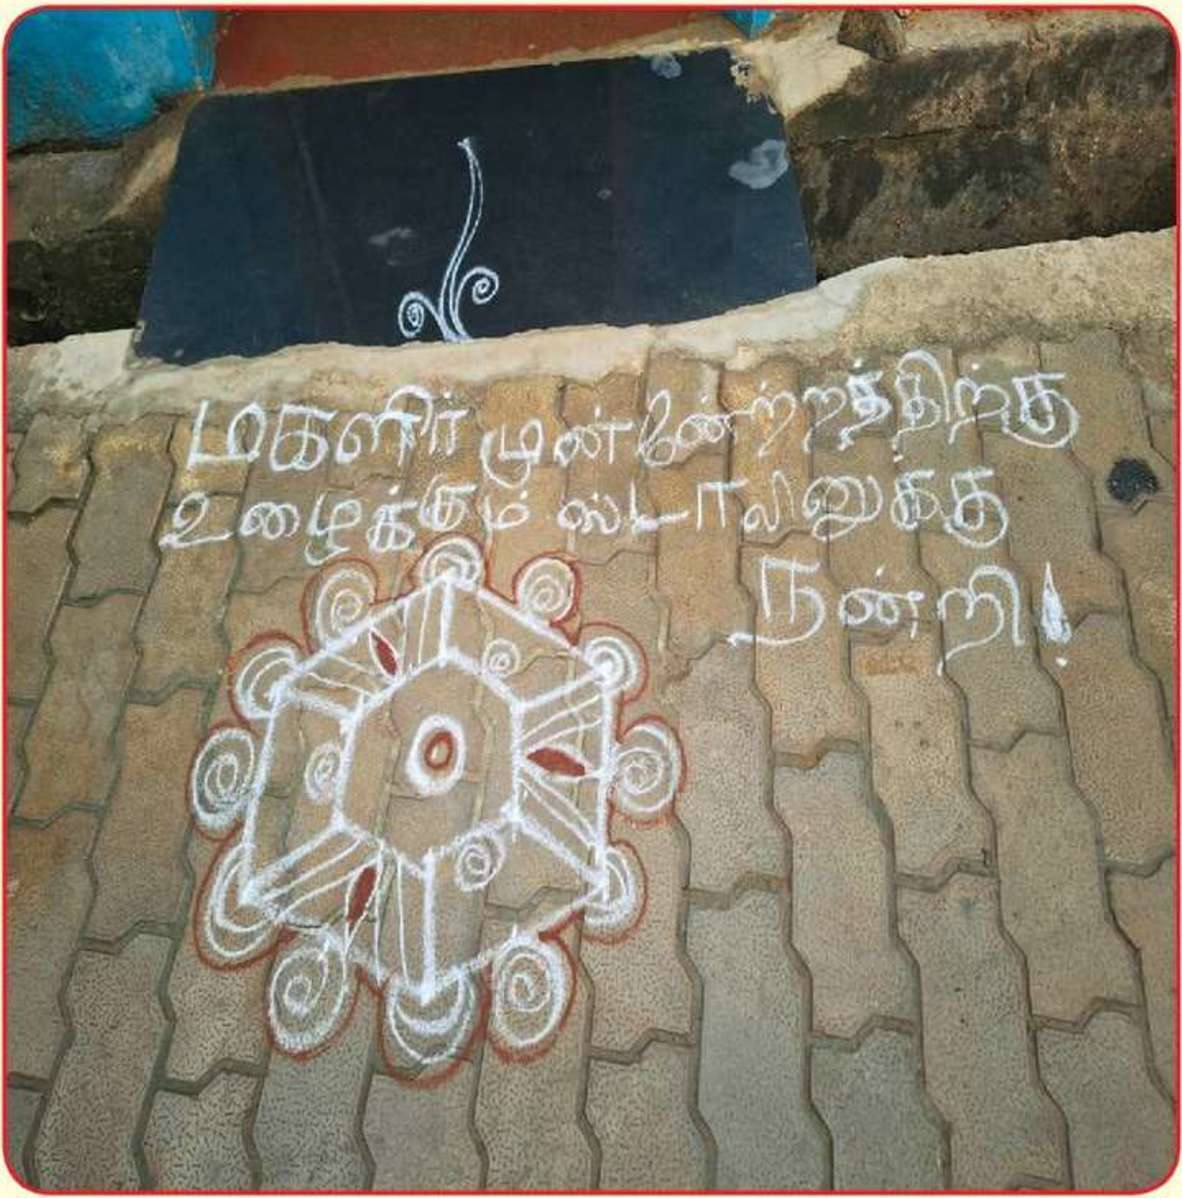 மகளிர் முன்னேற்றத்திற்கு
உழைக்கும் ஸ்டாலினுக்கு
நன்றி!